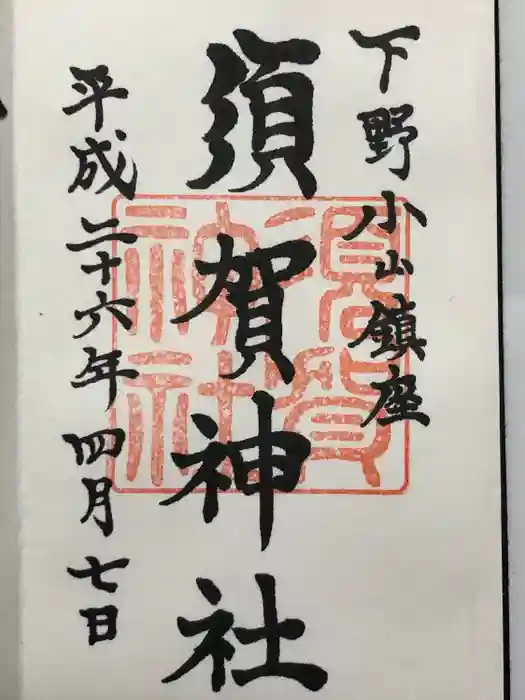 下野小山鎮座
須賀神社
平成二十六年四月七日
須賀神社